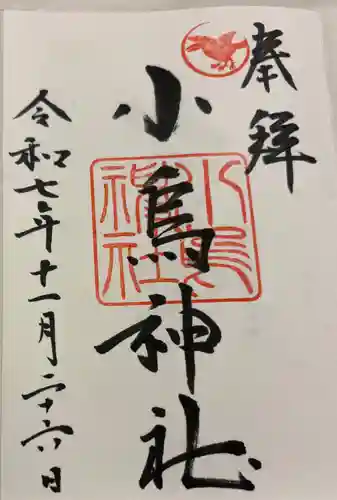 奉拝
小烏神社
令和七年十一月二十六日
小烏
神社